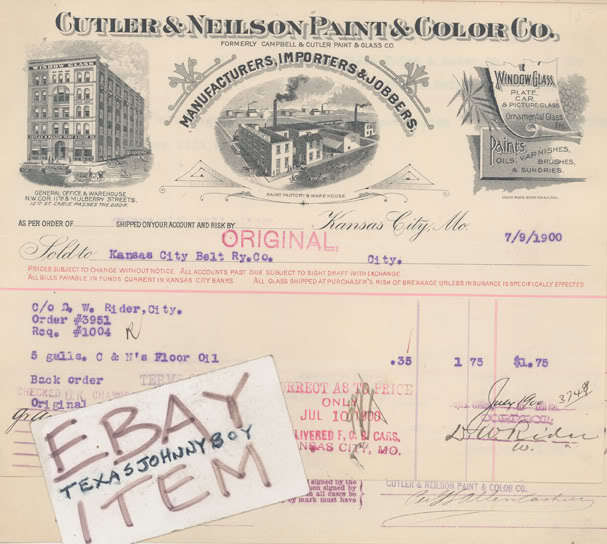 CUTLER & NEILSON PAINT & COLOR CO.
FORMERLY CAMPBELL & CUTLER PAINT & GLASS CO.
MANUFACTURERS, IMPORTERS & JOBBERS.
WINDOW GLASS
GENERAL OFFICE & WAREHOUSE
N.W. COR. 11TH & MULBERRY STREETS.
12TH ST. CABLE PASSES THE DOOR.
PAINT FACTORY & WAREHOUSE
WINDOW GLASS,
PLATE,
CAR,
& PICTURE GLASS
Ornamental Glass
Paints,
OILS, VARNISHES,
BRUSHES,
& SUNDRIES.
AS PER ORDER OF
SHIPPED ON YOUR ACCOUNT AND RISK BY
Kansas City, Mo.
7/9/1900
ORIGINAL.
Sold to Kansas City Belt Ry. Co. City.
PRICES SUBJECT TO CHANGE WITHOUT NOTICE. ALL ACCOUNTS PAST DUE SUBJECT TO SIGHT DRAFT WITH EXCHANGE.
ALL BILLS PAYABLE IN FUNDS CURRENT IN KANSAS CITY BANKS. ALL GLASS SHIPPED AT PURCHASER'S RISK OF BREAKAGE UNLESS INSURANCE IS SPECIFICALLY EFFECTED
C/o D. W. Rider, City.
Order #3951
Req. #1004
5 galls. C & N's Floor Oil .35 1 75 $1.75
Back order
TERMS
Original
CORRECT AS TO PRICE
ONLY
JUL 10 1900
DELIVERED F. O. B. CARS,
KANSAS CITY, MO.
July 1900
3748
D. W. Rider
CUTLER & NEILSON PAINT & COLOR CO.
EBAY
TEXASJOHNNYBOY
ITEM
signed by the
signed by
on all cases be
by mark must have